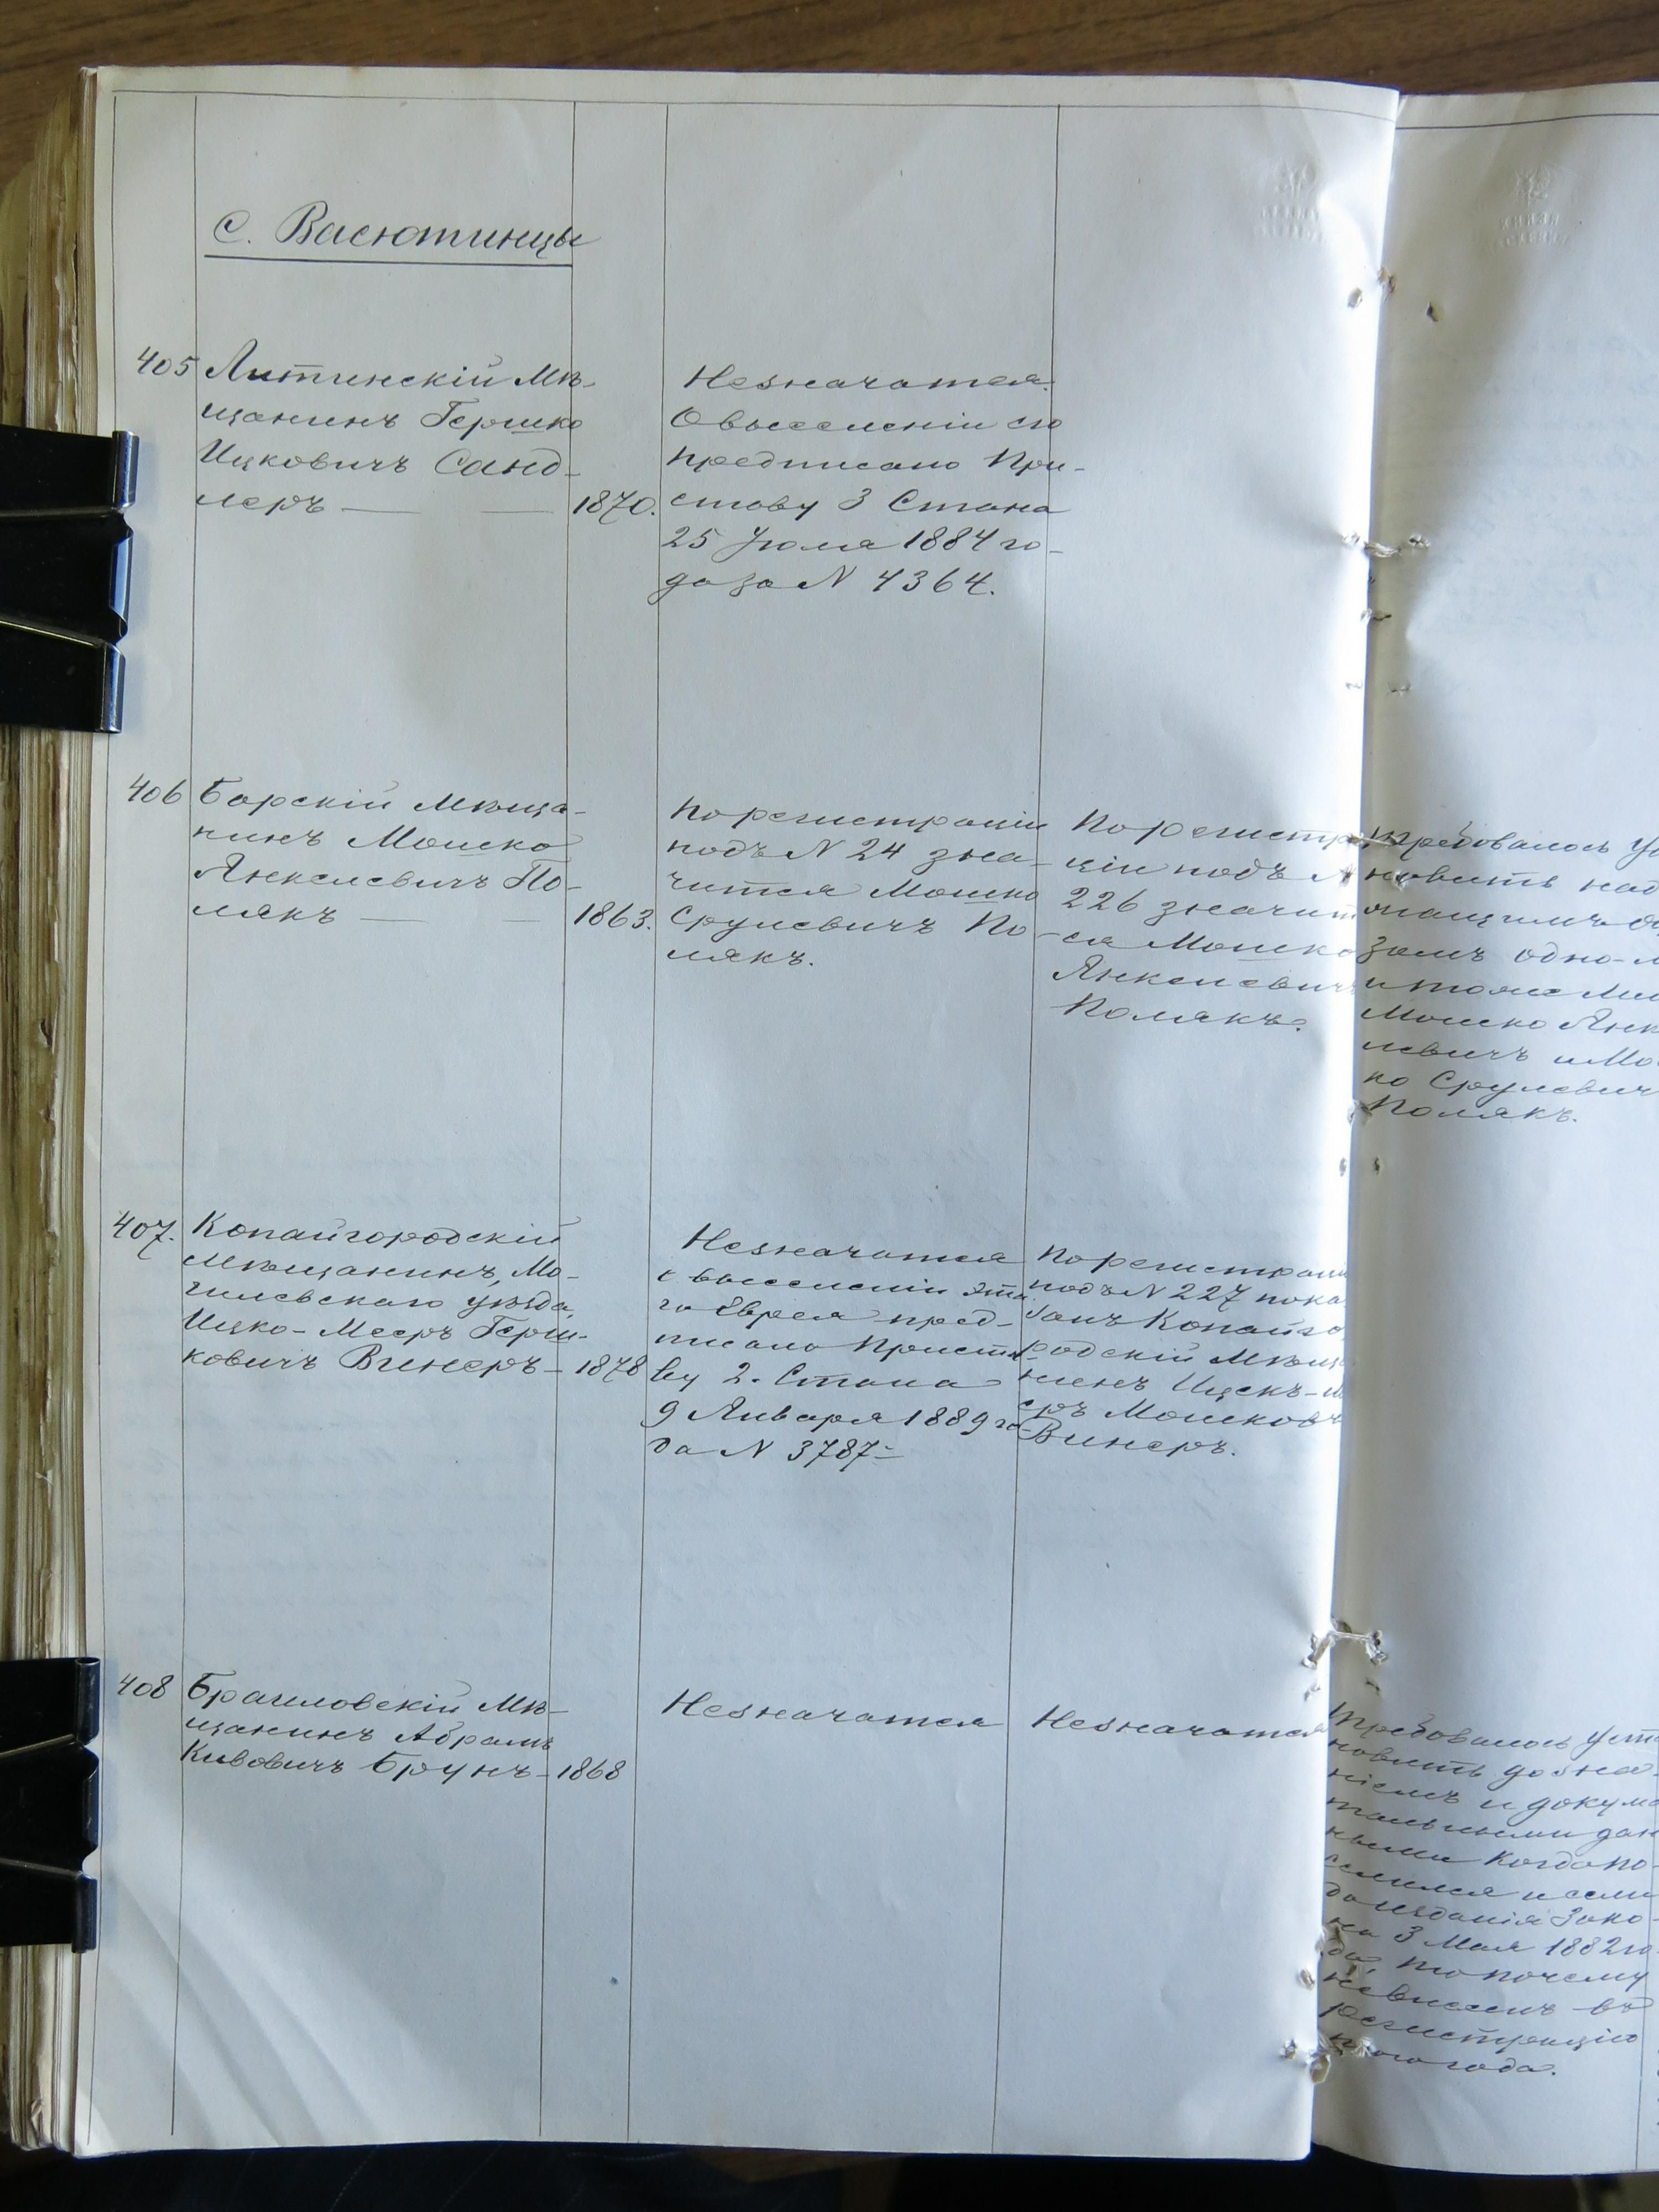 с. Васютинцы
405 Литинскій Мѣ-
щанинъ Гершко
Ицковичъ Санд-
леръ — — 1870.
Незначится.
О выселеніи его
предписано При-
ставу 3 Стана
25 Іюля 1884 го-
да за N 4364.
406 Барскій Мѣща-
нинъ Мошко
Янкелевичъ По-
лякъ — — 1863.
По регистраціи
подъ N 24 зна-
чится Мошко
Срулевичъ По-
лякъ.
По регистра-
ціи подъ N
226 значит
ся Мошко
Янкелевичъ
Полякъ.
Требовалось Ус
новить над
лежащимъ об
зомъ одно-л
и тоже Ли
Мошко Янк
левичъ и Мо
ко Срулевич
Полякъ.
407. Копайгородскій
Мѣщанинъ, Мо-
гилевскаго уѣзда,
Ицко-Мееръ Герш-
ковичъ Винеръ — 1878
Незначится
о выселеніи Это
го Еврея пред-
писано Приста
ву 2. Стана
9 Января 1889 го-
да N 3787 –
По регистраци
подъ N 227 пока
занъ Копайго
родскій Мѣща
нинъ Ицекъ-М
еръ Мошкович
Винеръ.
408 Браиловскій Мѣ-
щанинъ Абрамъ
Кивовичъ Брунъ — 1868
Незначится
Незначится
Требовалось Уст
новить дозна-
ніемъ и докуме
тальными дан
ными Когда по-
селился и если
до изданія Зако-
на 3 Мая 1882 го
да, то почему
невнесенъ въ
регистрацію
того года.